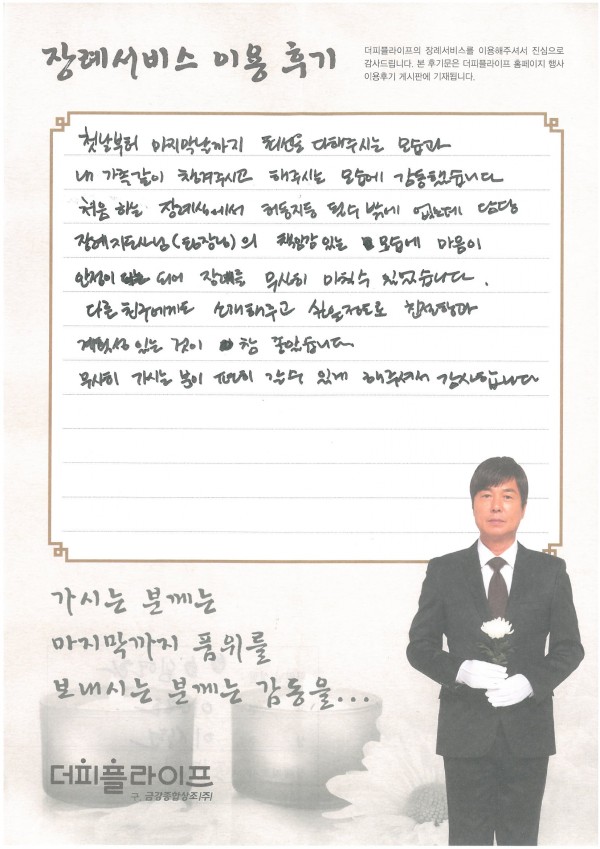 장례서비스 이용 후기
더피플라이프의 장례서비스를 이용해주셔서 진심으로
감사드립니다. 본 후기문은 더피플라이프 홈페이지 행사
이용후기 게시판에 기재됩니다.
첫날부터 마지막날까지 최선을 다해주시는 모습과
내 가족같이 챙겨주시고 해주시는 모습에 감동했습니다
처음 하는 장례식에서 허둥지둥 될수 밖에 없는데 담당
장례지도사님(팀장님)의 책임감 있는 모습에 마음이
안정이 되어 장례를 무사히 마칠수 있었습니다.
다른 친구에게도 소개해주고 싶을정도로 친절함과
계획성 있는 것이 참 좋았습니다
무사히 가시는 분이 편히 갈수 있게 해주셔서 감사합니다
가시는 분께는
마지막까지 품위를
보내시는 분께는 감동을...
더피플라이프
구. 금강종합상조(주)